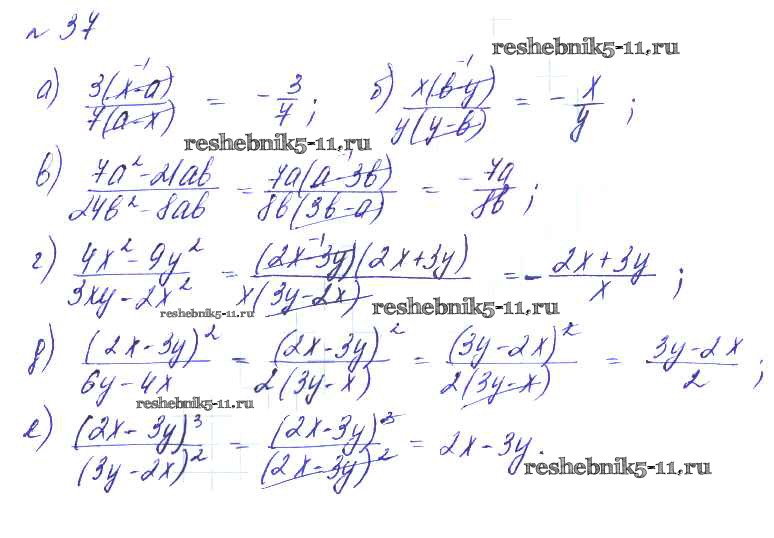 № 37
reshebnik5-11.ru
а) 3(x-a)^-1 / 7(a-x) = - 3/7 ; б) x(b-y)^-1 / y(y-b) = - x/y ;
reshebnik5-11.ru
в) 7a² - 21ab / 24b² - 8ab = 7a(a-3b)^-1 / 8b(3b-a) = - 7a/8b ;
г) 4x² - 9y² / 3xy - 2x² = (2x-3y)^-1 (2x+3y) / x(3y-2x) = - 2x+3y / x ;
reshebnik5-11.ru
reshebnik5-11.ru
д) (2x-3y)² / 6y-4x = (2x-3y)² / 2(3y-x) = (3y-2x)² / 2(3y-x) = 3y-2x / 2 ;
reshebnik5-11.ru
е) (2x-3y)³ / (3y-2x)² = (2x-3y)³ / (2x-3y)² = 2x-3y.
reshebnik5-11.ru